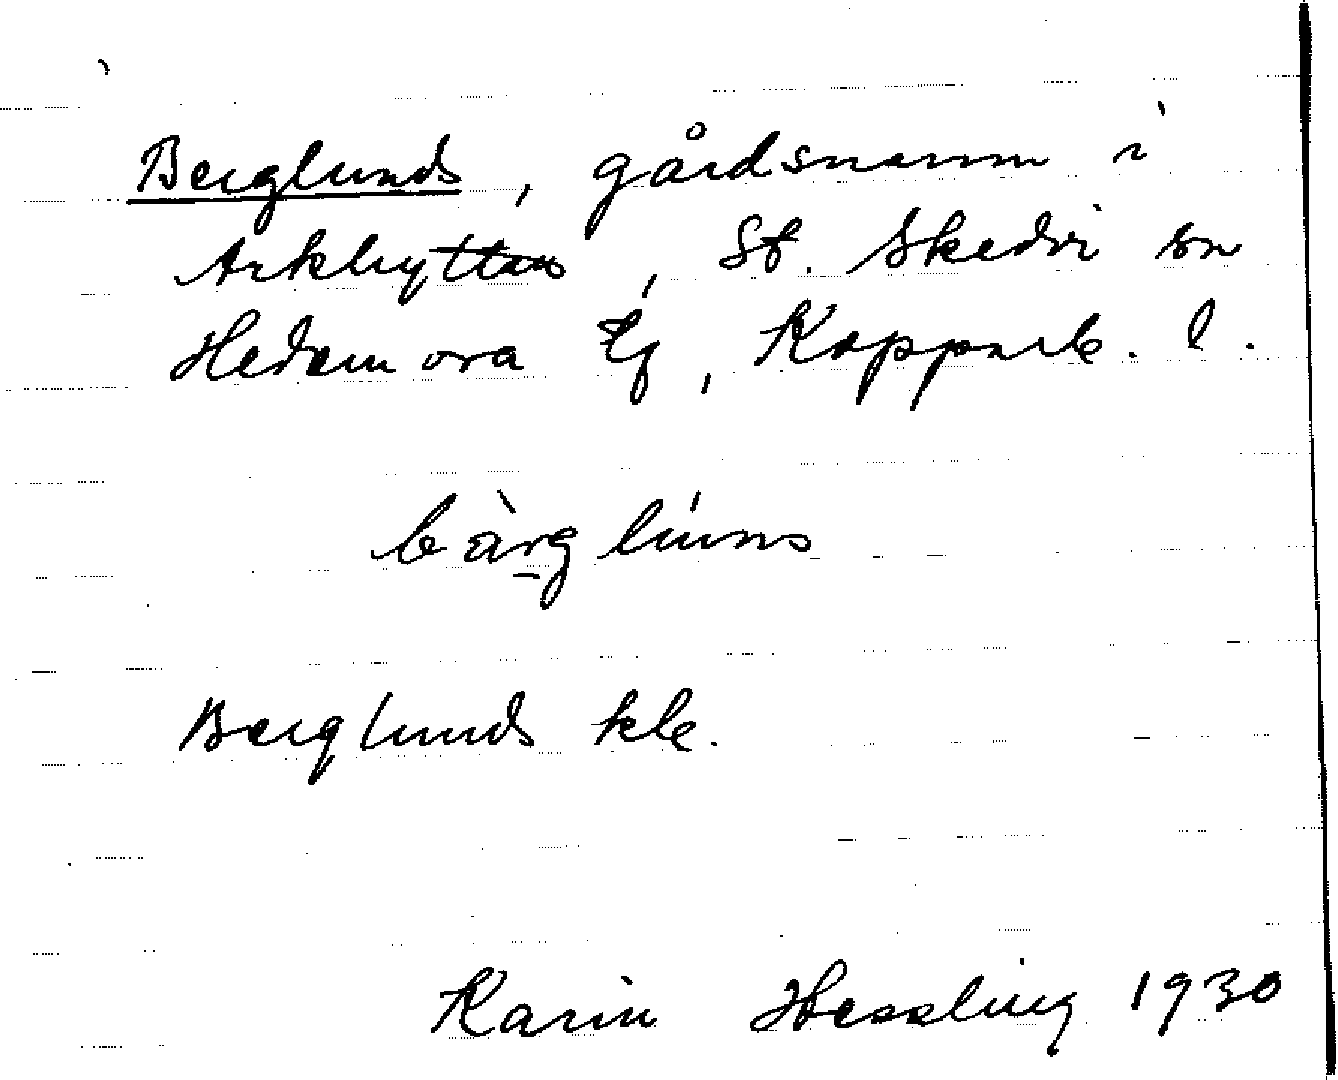 Berglunds, gårdsnamn i
Arkhyttan, St. Skedvi sn
Hedemora tg, Kopparb. l.
bàrg lúns
Berglunds kb.
Karin Hessling 1930